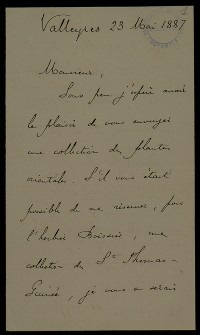 Valleyres 23 Mai 1887
Monsieur,
Sous peu j'espère avoir
le plaisir de vous envoyer
une collection de plantes
orientales. S'il vous était
possible de me réserver, pour
l'herbier Boissier, une
collection de St Thomas-
Guinée, je vous en serais